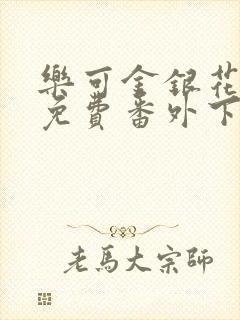 樂可金銀花
免費番外下
老馬大宗師